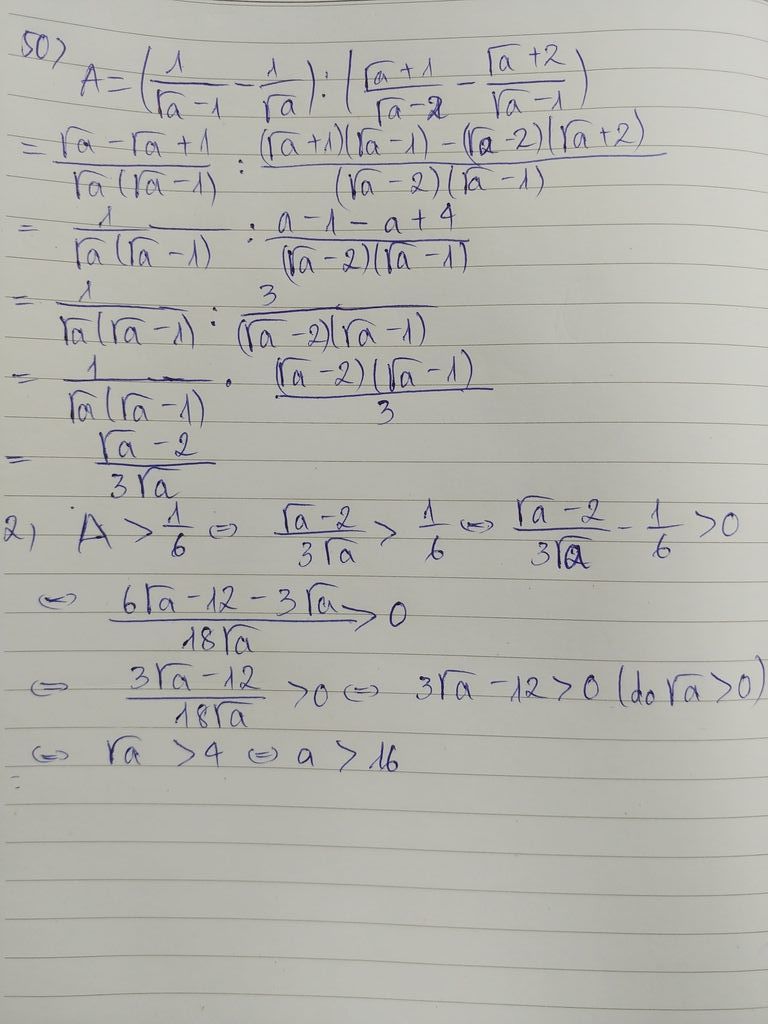 50)
A = (1/(√a - 1) - 1/√a) : ((√a + 1)/(√a - 2) - (√a + 2)/(√a - 1))
= (√a - √a + 1)/(√a(√a - 1)) : ((√a + 1)(√a - 1) - (√a - 2)(√a + 2))/((√a - 2)(√a - 1))
= 1/(√a(√a - 1)) : (a - 1 - a + 4)/((√a - 2)(√a - 1))
= 1/(√a(√a - 1)) : 3/((√a - 2)(√a - 1))
= 1/(√a(√a - 1)) . ((√a - 2)(√a - 1))/3
= (√a - 2)/(3√a)
2) A > 1/6 ⇔ (√a - 2)/(3√a) > 1/6 ⇔ (√a - 2)/(3√a) - 1/6 > 0
⇔ (6√a - 12 - 3√a)/(18√a) > 0
⇔ (3√a - 12)/(18√a) > 0 ⇔ 3√a - 12 > 0 (do √a > 0)
⇔ √a > 4 ⇔ a > 16